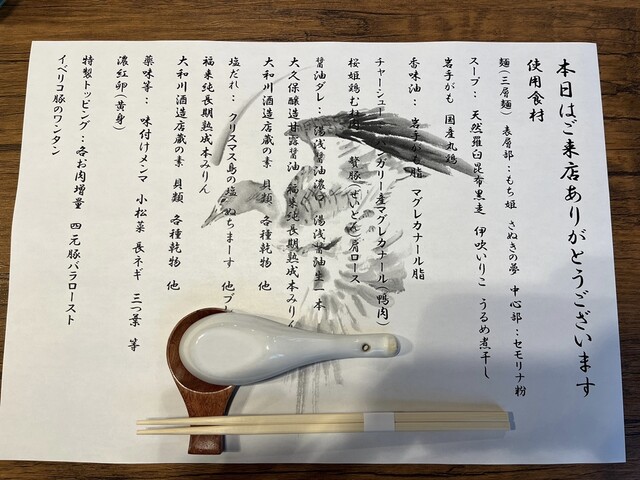 本日はご来店ありがとうございます
使用食材
麺(三層麺) 表層部:もち姫 さぬきの夢 中心部:セモリナ粉
スープ: 天然羅臼昆布黒走 伊吹いりこ うるめ煮干し
岩手がも 国産丸鶏
香味油: 岩手がも脂 マグレカナール脂
チャーシュー: ハンガリー産マグレカナール(鴨肉)
桜姫鶏むね肉 贅豚(ぜいとん)肩ロース
醤油ダレ: 湯浅醤油濃口 湯浅醤油生一本
大久保醸造甘露醤油 福来純長期熟成本みりん
大和川酒造店蔵の素 貝類 各種乾物 他
塩だれ: クリスマス島の塩 ぬちまーす 他ブ
福来純長期熟成本みりん
大和川酒造店蔵の素 貝類 各種乾物 他
薬味等: 味付けメンマ 小松菜 長ネギ 三つ葉 等
濃紅卵(黄身)
特製トッピング:各お肉増量 四元豚バラロースト
イベリコ豚のワンタン